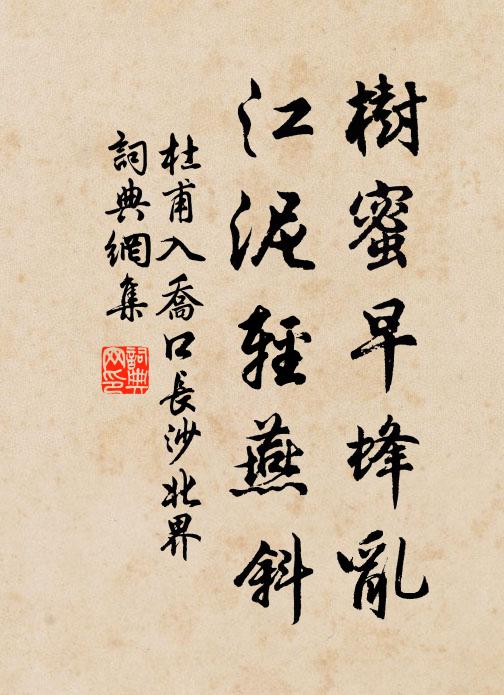 樹蜜早蜂亂
江泥輕燕斜
杜甫入喬口長沙北界
詞典網集
詞典网印